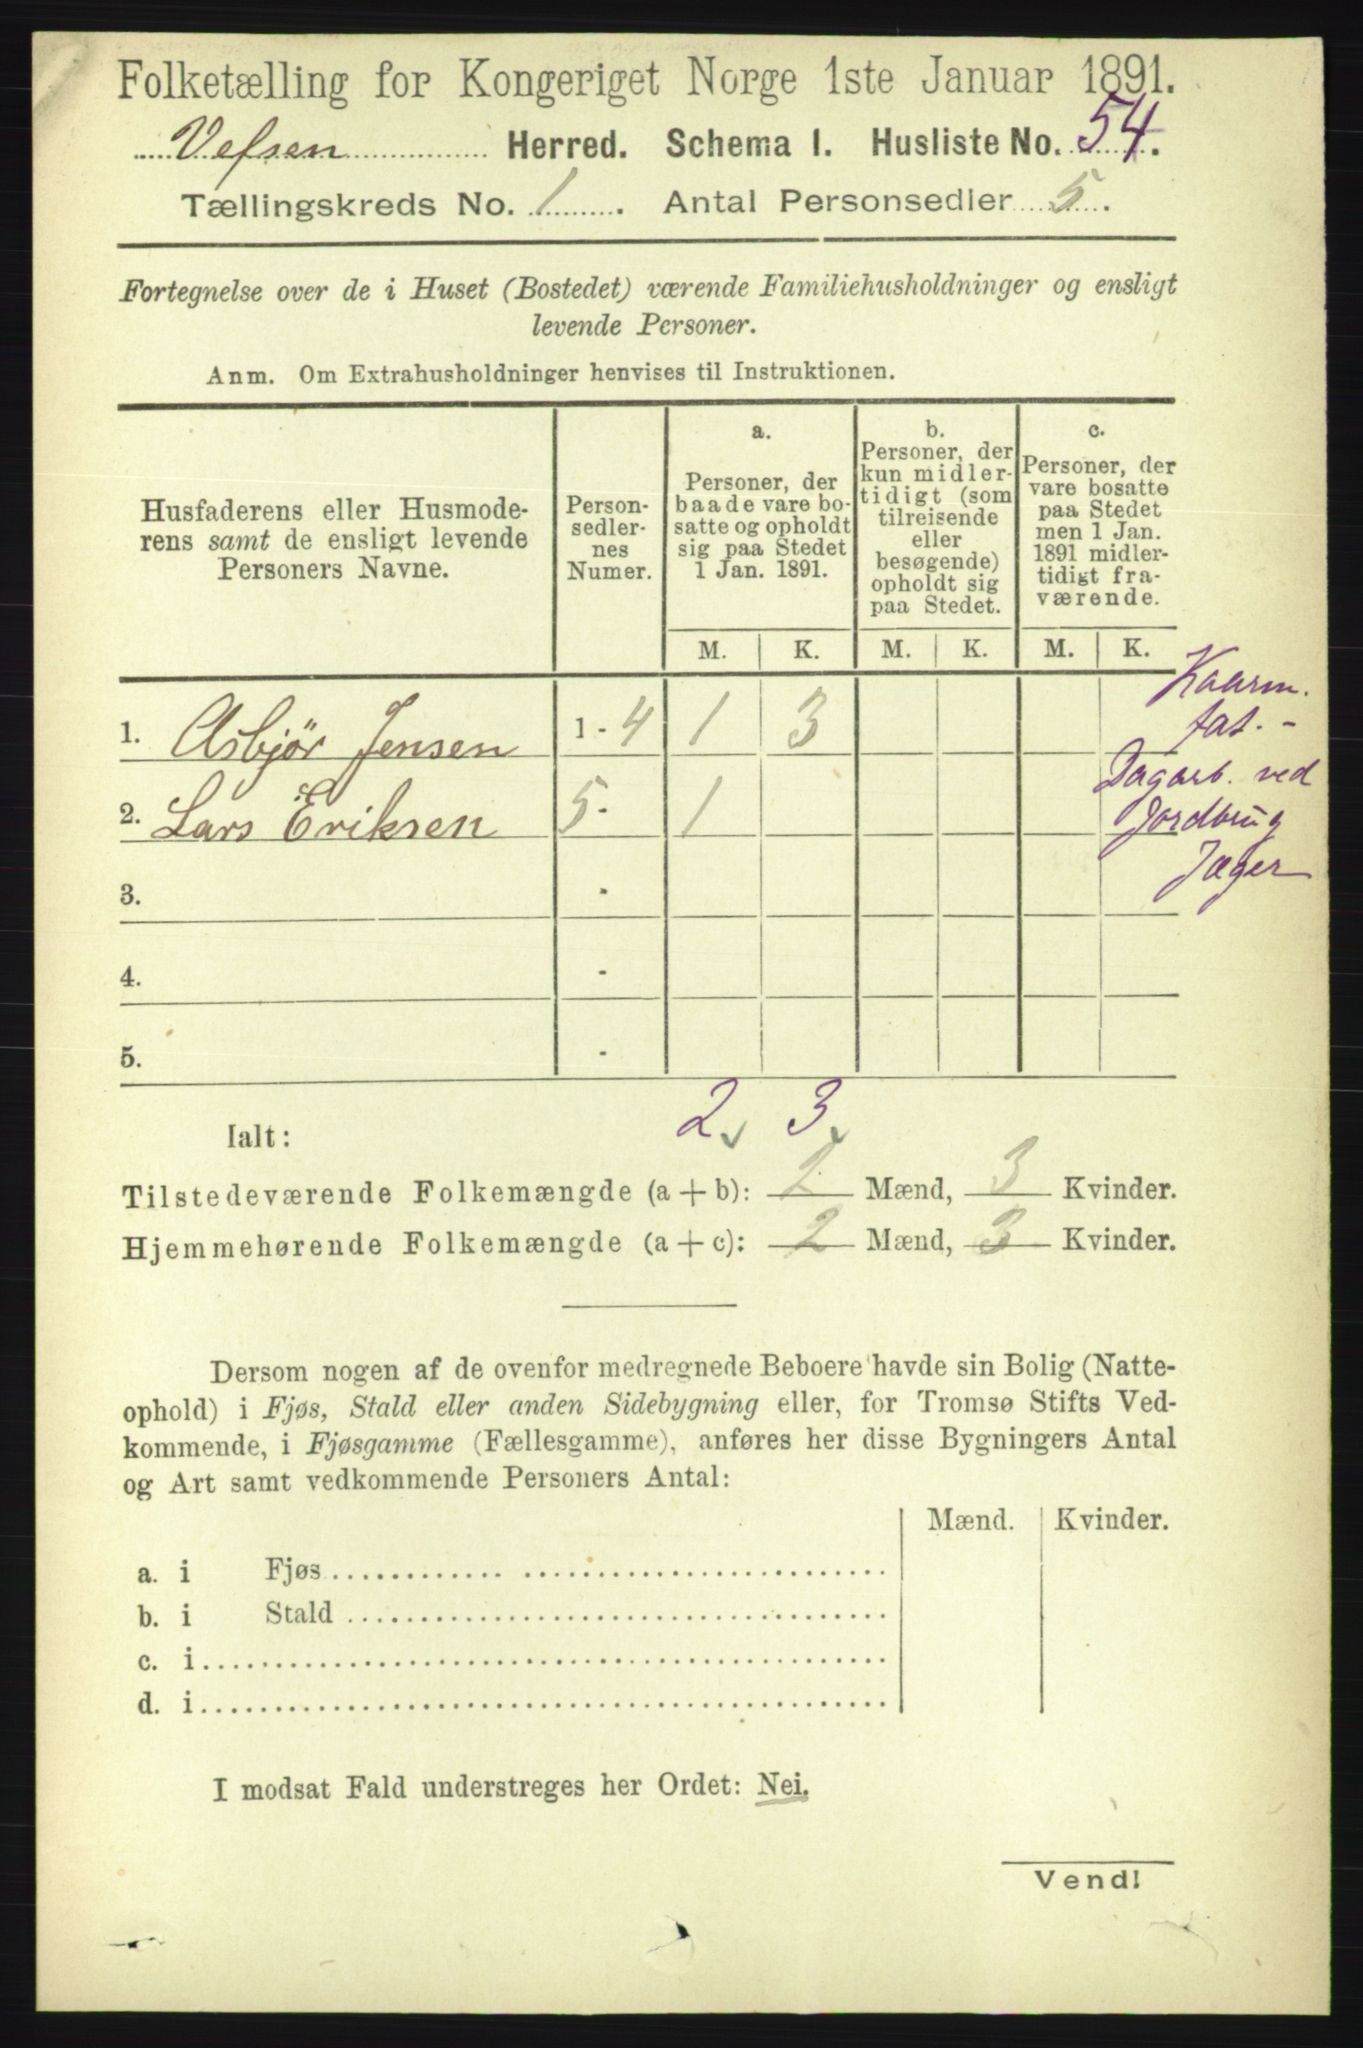 Folketælling for Kongeriget Norge 1ste Januar 1891.
Vefsen Herred. Schema I. Husliste No. 54.
Tællingskreds No. 1. Antal Personsedler 5.
Fortegnelse over de i Huset (Bostedet) værende Familiehusholdninger og ensligt
levende Personer.
Anm. Om Extrahusholdninger henvises til Instruktionen.
Husfaderens eller Husmode-
rens samt de ensligt levende
Personers Navne.
Person-
sedler-
nes
Numer.
a.
Personer, der
baade vare bo-
satte og opholdt
sig paa Stedet
1 Jan. 1891.
b.
Personer, der
kun midler-
tidigt (som
tilreisende
eller
besøgende)
opholdt sig
paa Stedet.
c.
Personer, der
vare bosatte
paa Stedet
men 1 Jan.
1891 midler-
tidigt fra-
værende.
M. K. M. K. M. K.
1. Asbjör Jensen 1 - 4 1 3
2. Lars Eriksen 5 - 1
3. -
4. -
5. -
fat. -
Dagarb. ved
Jordbrug
Jæger
Ialt: 2 3
Tilstedeværende Folkemængde (a + b): 2 Mænd, 3 Kvinder.
Hjemmehørende Folkemængde (a + c): 2 Mænd, 3 Kvinder.
Dersom nogen af de ovenfor medregnede Beboere havde sin Bolig (Natte-
ophold) i Fjøs, Stald eller anden Sidebygning eller, for Tromsø Stifts Ved-
kommende, i Fjøsgamme (Fællesgamme), anføres her disse Bygningers Antal
og Art samt vedkommende Personers Antal:
Mænd. Kvinder.
a. i Fjøs
b. i Stald
c. i
d. i
I modsat Fald understreges her Ordet: Nei.
Vend!